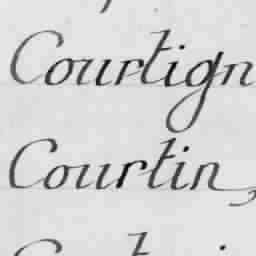 Courtign
Courtin,